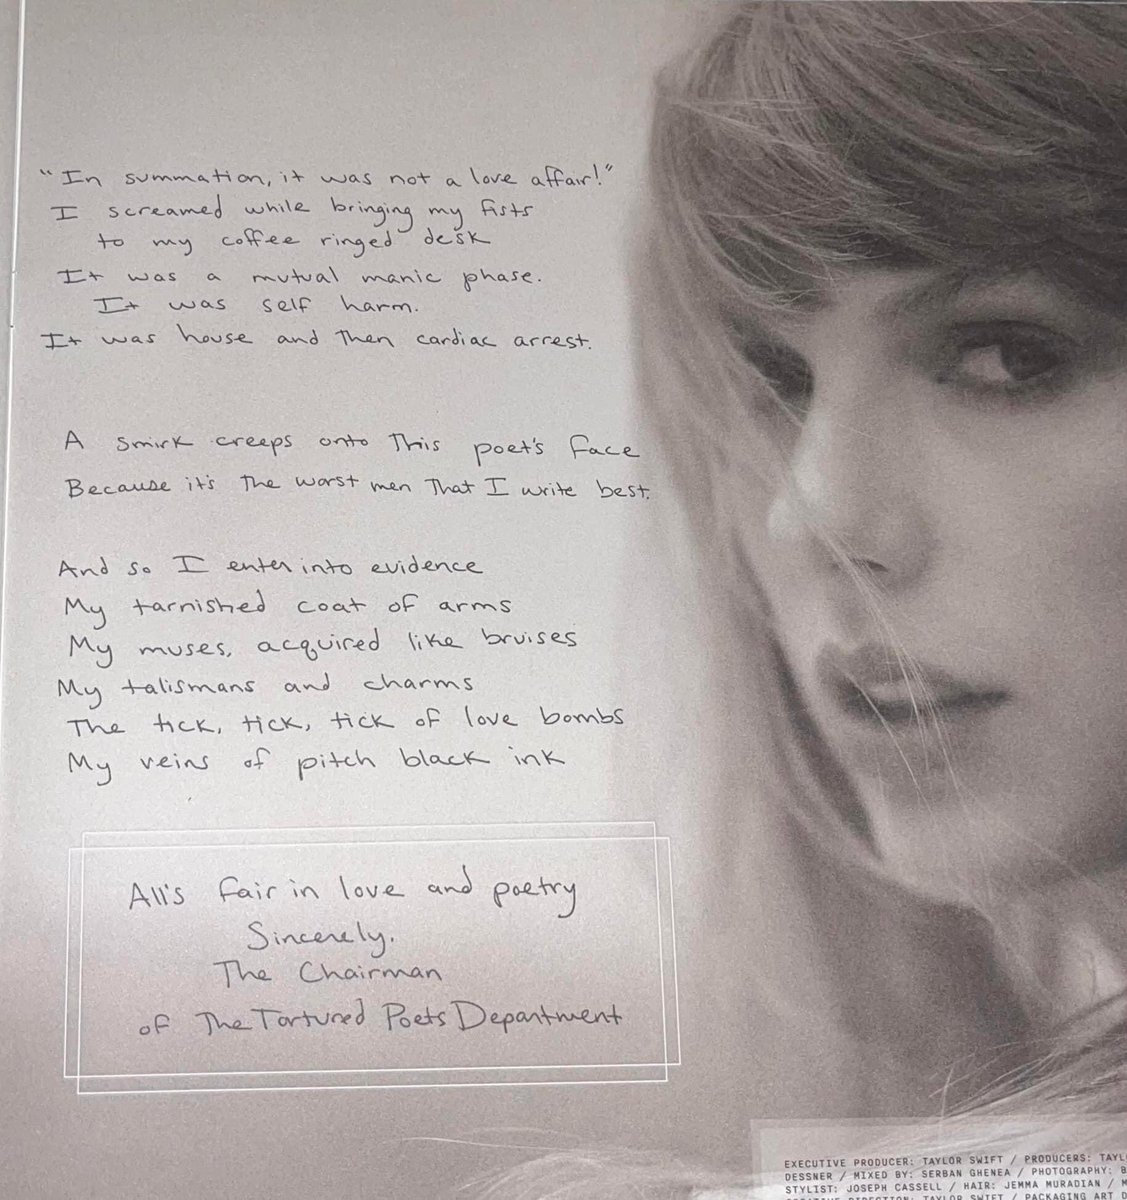 "In summation, it was not a love affair!"
I screamed while bringing my fists
to my coffee ringed desk
It was a mutual manic phase.
It was self harm.
It was house and then cardiac arrest.
A smirk creeps onto this poet's face
Because it's the worst men that I write best.
And so I enter into evidence
My tarnished coat of arms
My muses, acquired like bruises
My talismans and charms
The tick, tick, tick of love bombs
My veins of pitch black ink
All's fair in love and poetry
Sincerely,
The Chairman
of The Tortured Poets Department
EXECUTIVE PRODUCER: TAYLOR SWIFT / PRODUCERS:
DESSNER / MIXED BY: SERBAN GHENEA / PHOTOGRAPHY:
STYLIST: JOSEPH CASSELL / HAIR: JEMMA MURADIAN /
TAYLOR SWIFT / PACKAGING ART